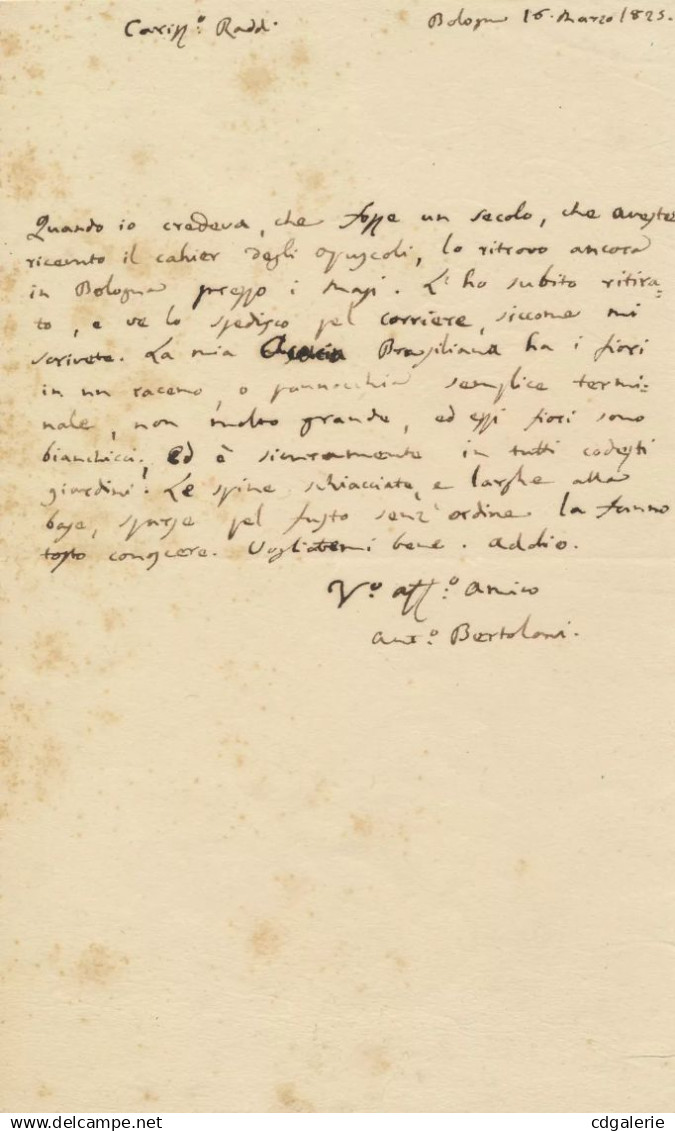 Bologna 16. Marzo 1825.
Cariss.º Raddi.
Quando io credeva, che fosse un secolo, che aveste
ricevuto il cahier degli opuscoli, lo ritrovo ancora
in Bologna presso i Masi. L'ho subito ritira-
to, e ve lo spedisco pel corriere, siccome mi
scrivete. La mia Acacia Brasiliana ha i fiori
in un racemo, o pannocchia semplice termi-
nale, non molto grande, ed essi fiori sono
bianchicci; Ed è sicuramente in tutti codesti
giardini. Le spine schiacciate, e larghe alla
base, sparse pel fusto senz'ordine la fanno
tosto conoscere. Vogliatemi bene. Addio.
Vº aff.º Amico
Antº Bertoloni.
cdgalerie